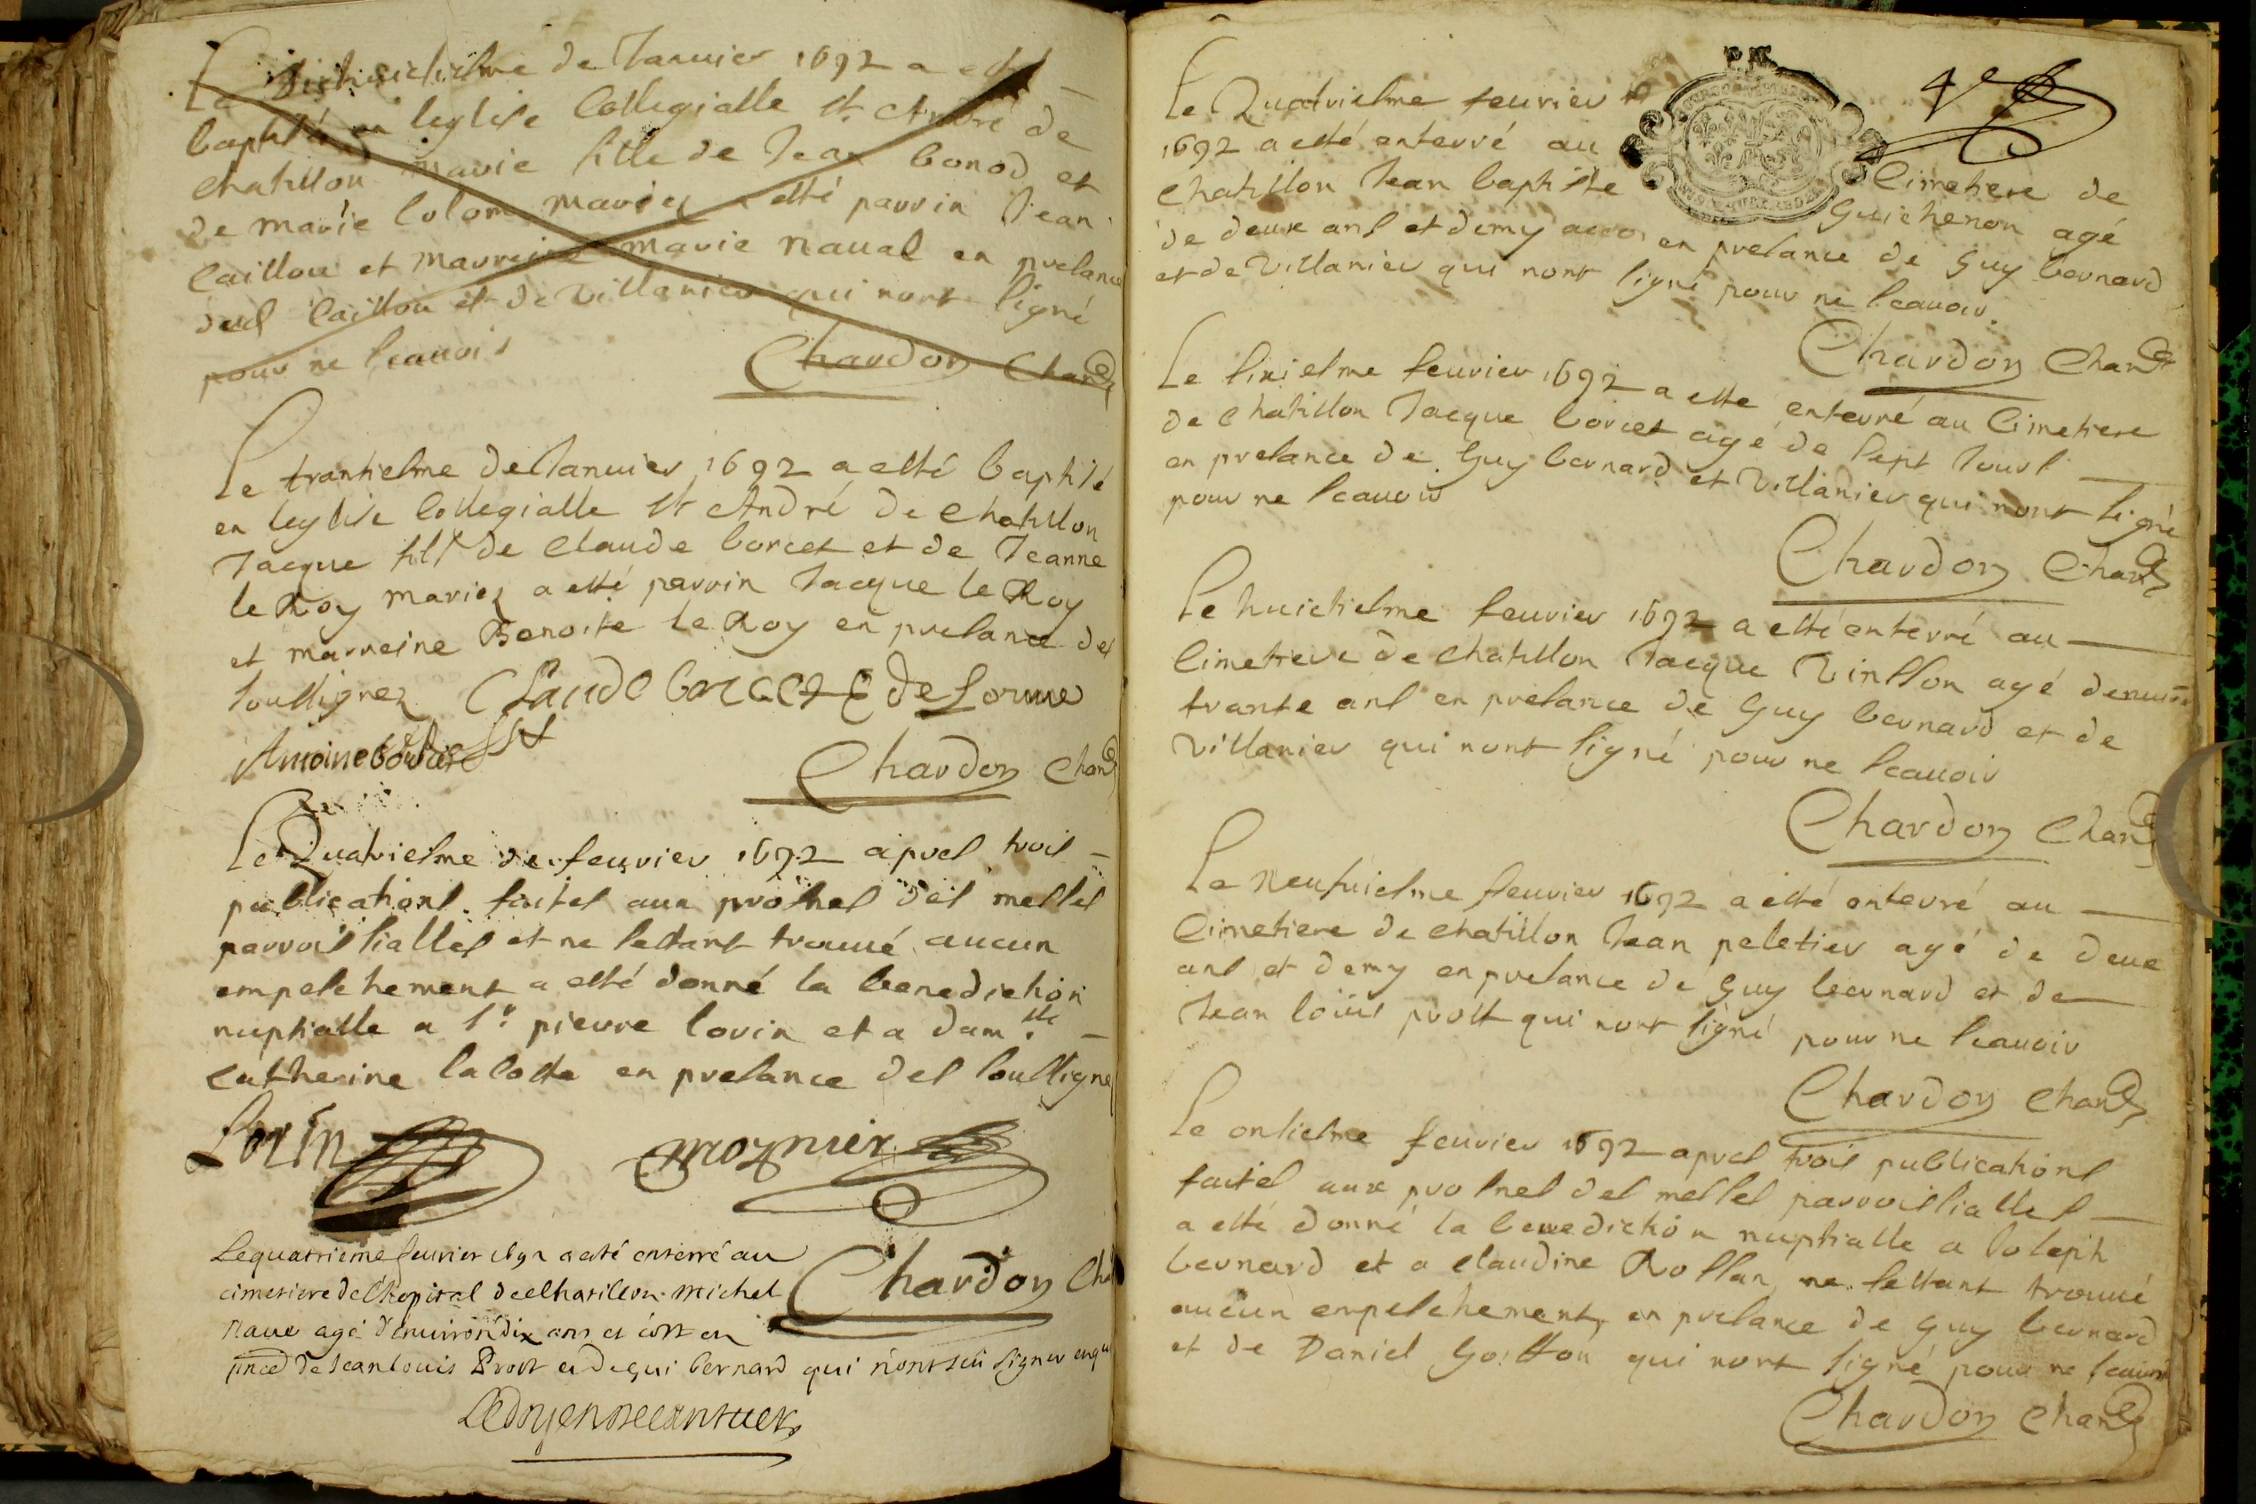 Le dixhuictiesme de Januier 1692 a esté
baptisé en leglise Collegialle St André de
chatillon marie fille de Jean bonod et
de marie Colom mariez a esté parrin Jean
Caillou et marreine marie naual en presance
dud Caillou et de Villanier qui nont signé
pour ne scauoir
Chardon Chan
Le trantiesme de Januier 1692 a esté baptisé
en leglise Collegialle St André de chatillon
Jacque fils de Claude borcet et de Jeanne
le Roy mariez a esté parrin Jacque le Roy
et marreine Benoite le Roy en presance des
soussignez Claude borcet C deLorme
Antoine
Chardon Chan
Le Quatriesme de feurier 1692 apres trois
publications faites aux prosnes des messes
parroissialles et ne sestant trouué aucun
empeschement a esté donné la benediction
nuptialle a Sr. pierre lorin et a dam.lle
catherine lacoste en presance des soussigne
Lorin mornier
Le quatrieme feurier 1692 a esté enterré au
cimetiere de l'hopital de Chatillon michel
naue agé d'enuiron dix ans et cort en
pnce de Jean louis Prost et de gui bernard qui n'ont sçu signer enqu
Chardon Cha
Le doyen
4e
Le Quatriesme feurier
1692 a esté enterré au Cimetiere de
chatillon Jean baptiste Guichenon agé
de deux ans et demy en presance de Guy bernard
et de Villanier qui nont signé pour ne scauoir.
Chardon Chan
Le sixiesme feurier 1692 a esté enterré au Cimetiere
de chatillon Jacque borcet agé de sept Jours
en presance de Guy bernard et Villanier qui nont signé
pour ne scauoir
Chardon Chan
Le huictiesme feurier 1692 a esté enterré au
Cimetiere de chatillon Jacque Vinsson agé denuiron
trante ans en presance de Guy bernard et de
Villanier qui nont signé pour ne scauoir
Chardon Chan
Le neufuiesme feurier 1692 a esté enterré au
Cimetiere de chatillon Jean peletier agé de deux
ans et demy en presance de Guy bernard et de
Jean louis prost qui nont signé pour ne scauoir
Chardon Chan
Le onziesme feurier 1692 apres trois publications
faites aux prosnes des messes parroissialles
a esté donné la benediction nuptialle a Joseph
bernard et a claudine Rollan ne sestant trouué
aucun empeschement en presance de Guy bernard
et de Daniel Gotton qui nont signé pour ne scauoir
Chardon Chan